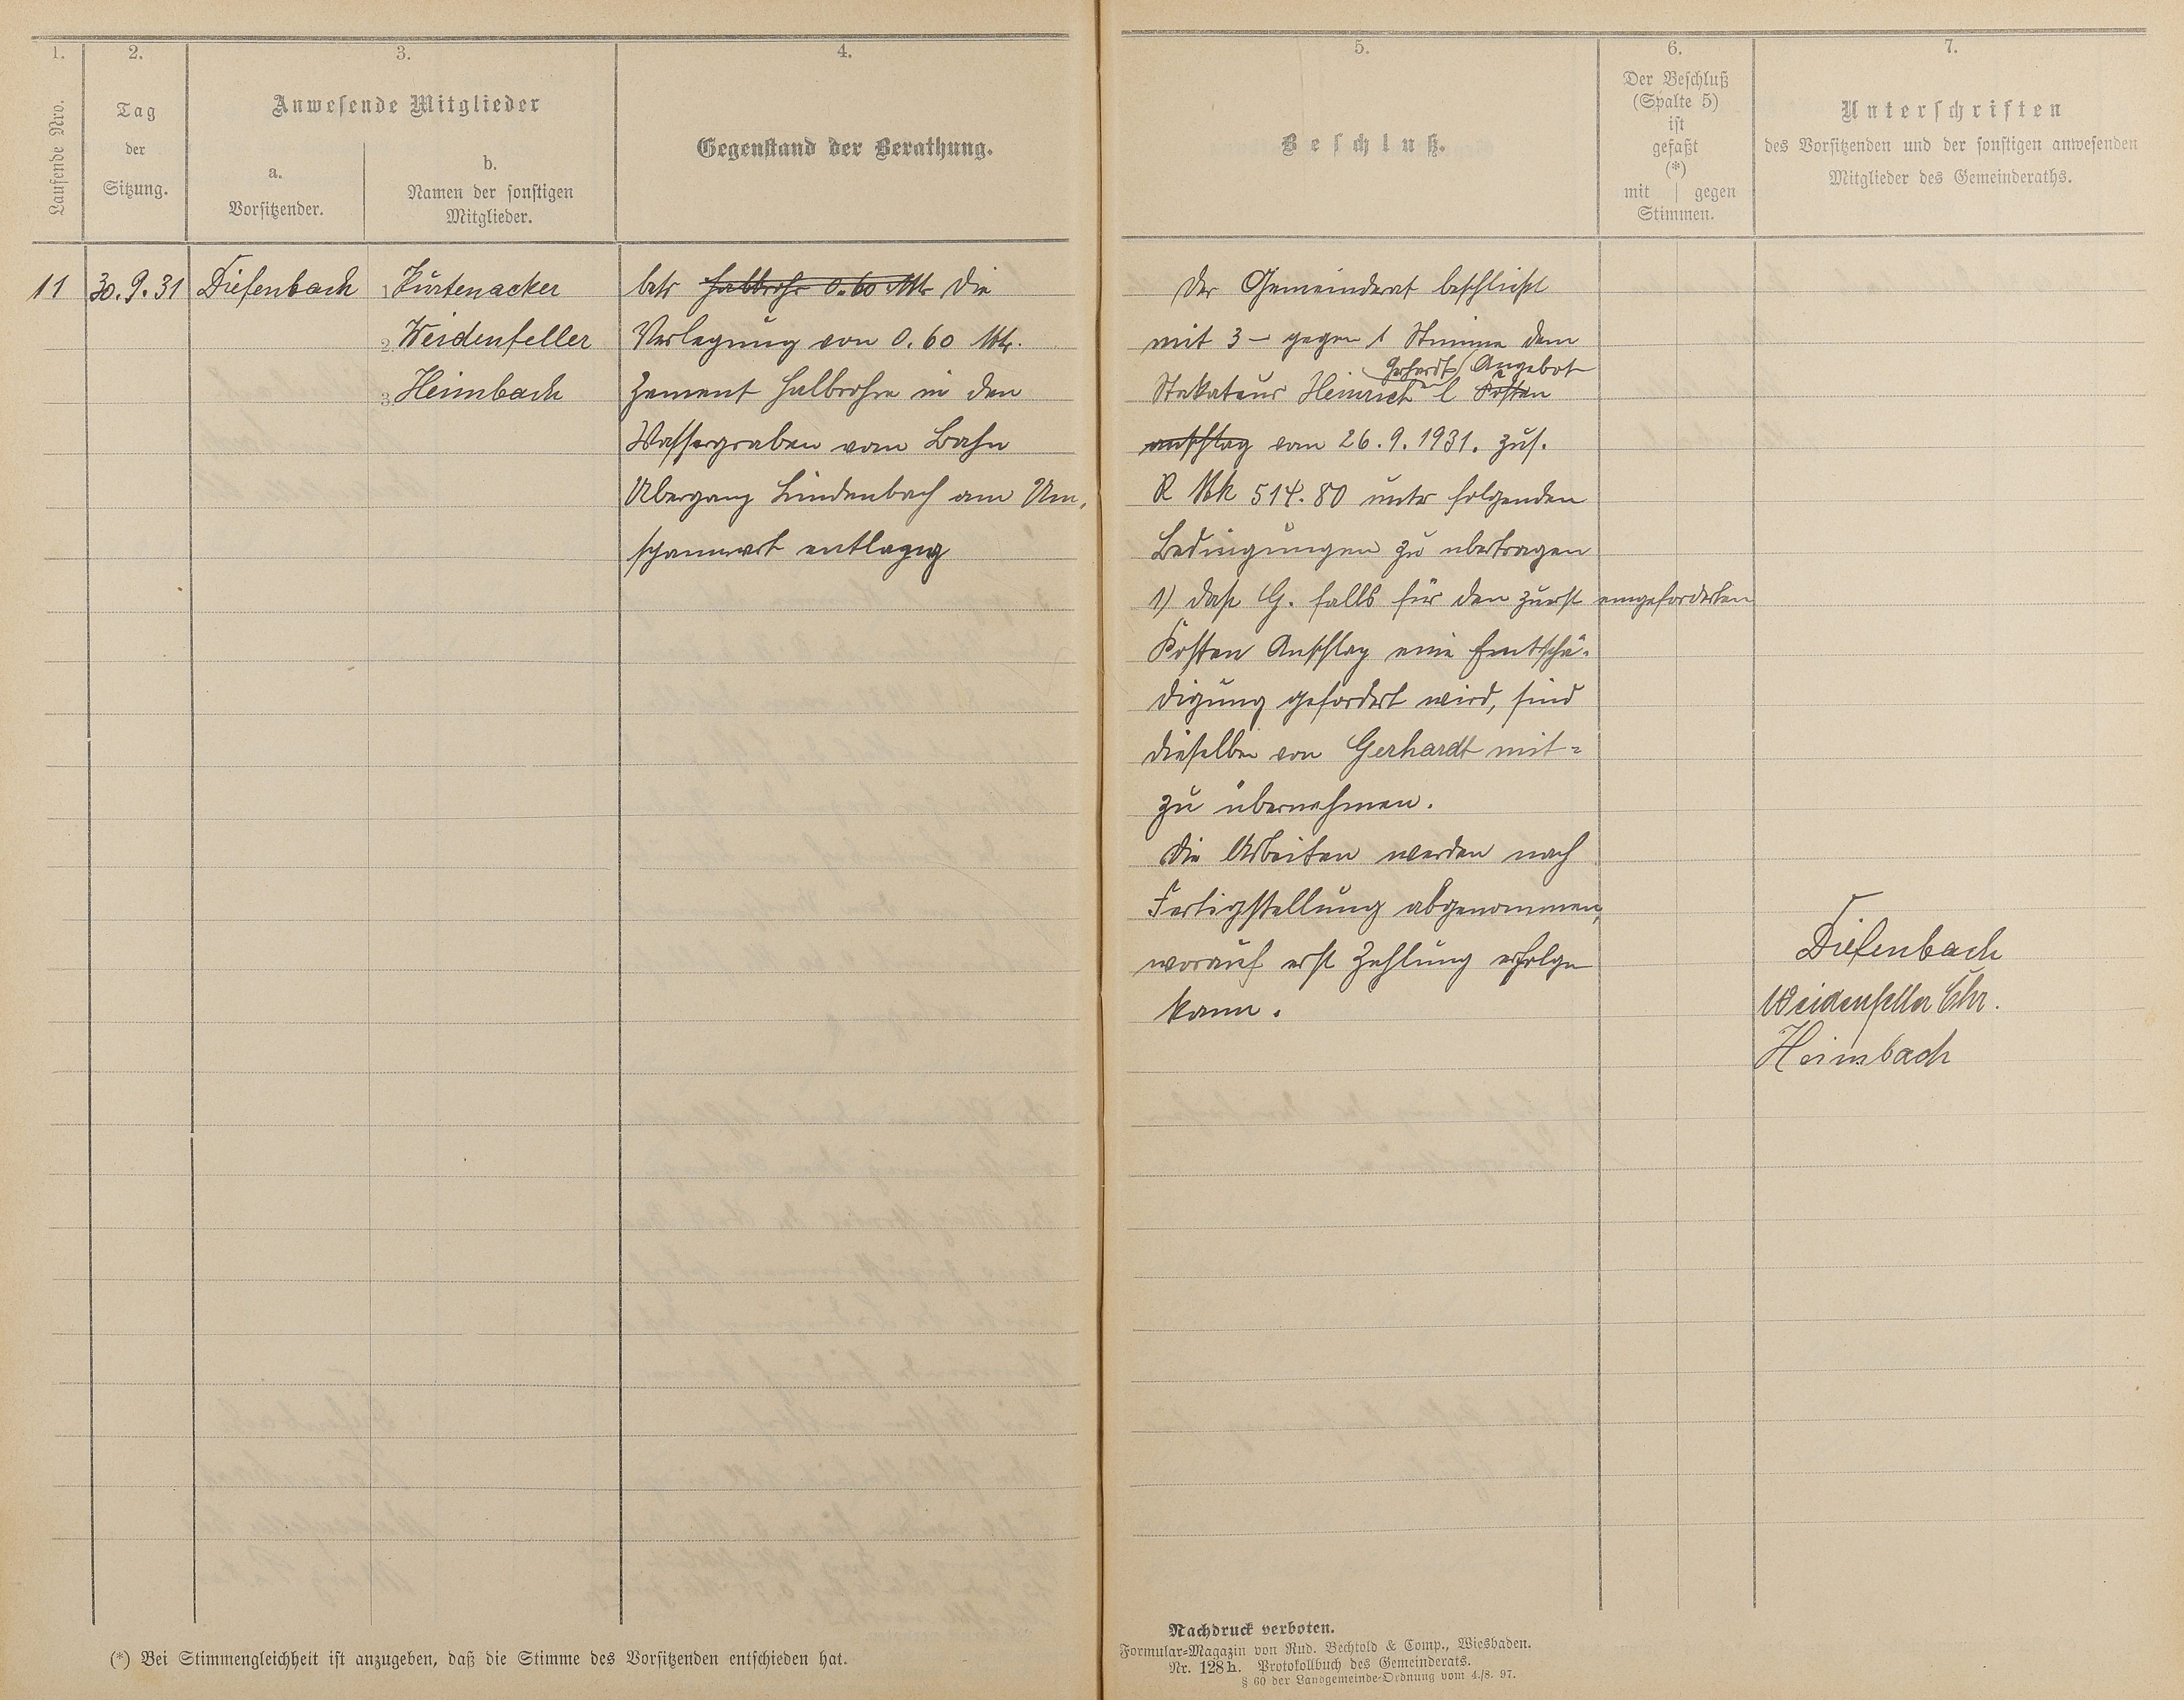 1.
2.
3.
4.
Laufende Nro.
Tag
der
Sitzung.
Anwesende Mitglieder
a.
Vorsitzender.
b.
Namen der sonstigen
Mitglieder.
Gegenstand der Berathung.
11
30.9.31
Diefenbach
1. Kurtenacker
2. Weidenfeller
3. Heimbach
betr Halbrohr 0.60 Mtr die
Verlegung von 0.60 Mtr.
Zement Halbrohre in den
Wassergraben vom Bahn
Übergang Lindenbach am Um,
spannwerk entlang
(*) Bei Stimmengleichheit ist anzugeben, daß die Stimme des Vorsitzenden entschieden hat.
5.
6.
7.
Beschluß.
Der Beschluß
(Spalte 5)
ist
gefaßt
(*)
mit | gegen
Stimmen.
Unterschriften
des Vorsitzenden und der sonstigen anwesenden
Mitglieder des Gemeinderaths.
Der Gemeinderat beschließt
mit 3 – gegen 1 Stimme dem
Gerhardt Angebot
Stukateur Heinrich Kosten
anschlag vom 26.9.1931. zus.
R Mk 514.80 unter folgenden
Bedingungen zu übertragen
1) daß G. falls für den zuerst eingeforderten
Kosten Anschlag eine Entschä-
digung gefordert wird, sind
dieselben von Gerhardt mit=
zu übernehmen.
Die Arbeiten werden nach
Fertigstellung abgenommen,
worauf erst Zahlung erfolgen
kann.
Diefenbach
Weidenfeller Chr.
Heimbach
Nachdruck verboten.
Formular-Magazin von Rud. Bechtold & Comp., Wiesbaden.
Nr. 128 h. Protokollbuch des Gemeinderats.
§ 60 der Landgemeinde-Ordnung vom 4./8. 97.